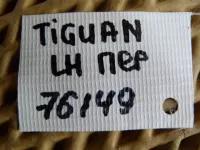 TiGUAN
LH пер
76149